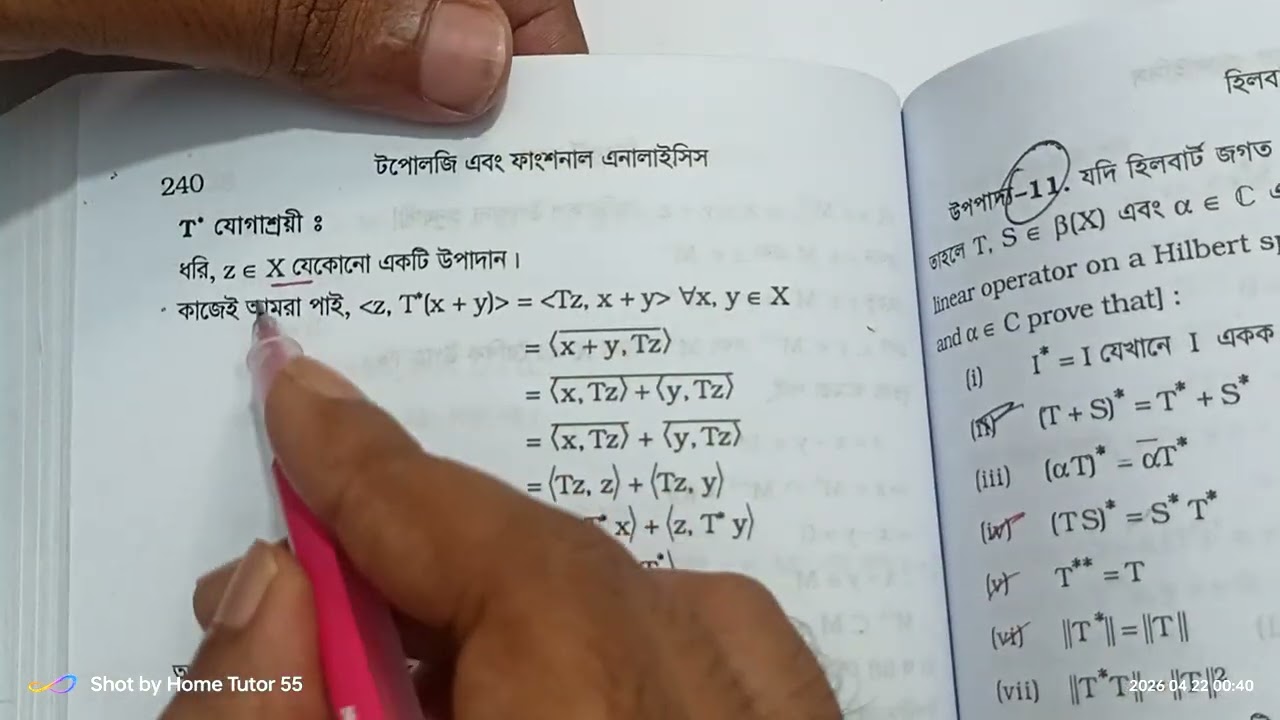 টপোলজি এবং ফাংশনাল এনালাইসিস
240
T* যোগাশ্রয়ী ঃ
ধরি, z ∈ X যেকোনো একটি উপাদান।
কাজেই আমরা পাই, <z, T*(x + y)> = <Tz, x + y> ∀x, y ∈ X
= \overline{⟨x + y, Tz⟩}
= \overline{⟨x, Tz⟩ + ⟨y, Tz⟩}
= \overline{⟨x, Tz⟩} + \overline{⟨y, Tz⟩}
= ⟨Tz, z⟩ + ⟨Tz, y⟩
x⟩ + ⟨z, T* y⟩
উপপাদ্য-11. যদি হিলবার্ট জগত
তাহলে T, S ∈ β(X) এবং α ∈ ℂ
linear operator on a Hilbert
and α ∈ C prove that] :
(i) I* = I যেখানে I একক
(ii) (T + S)* = T* + S*
(iii) (αT)* = \overline{α}T*
(iv) (TS)* = S* T*
(v) T** = T
(vi) ||T*|| = ||T||
(vii) ||T*T|| ||T||²
Shot by Home Tutor 55
2026 04 22 00:40